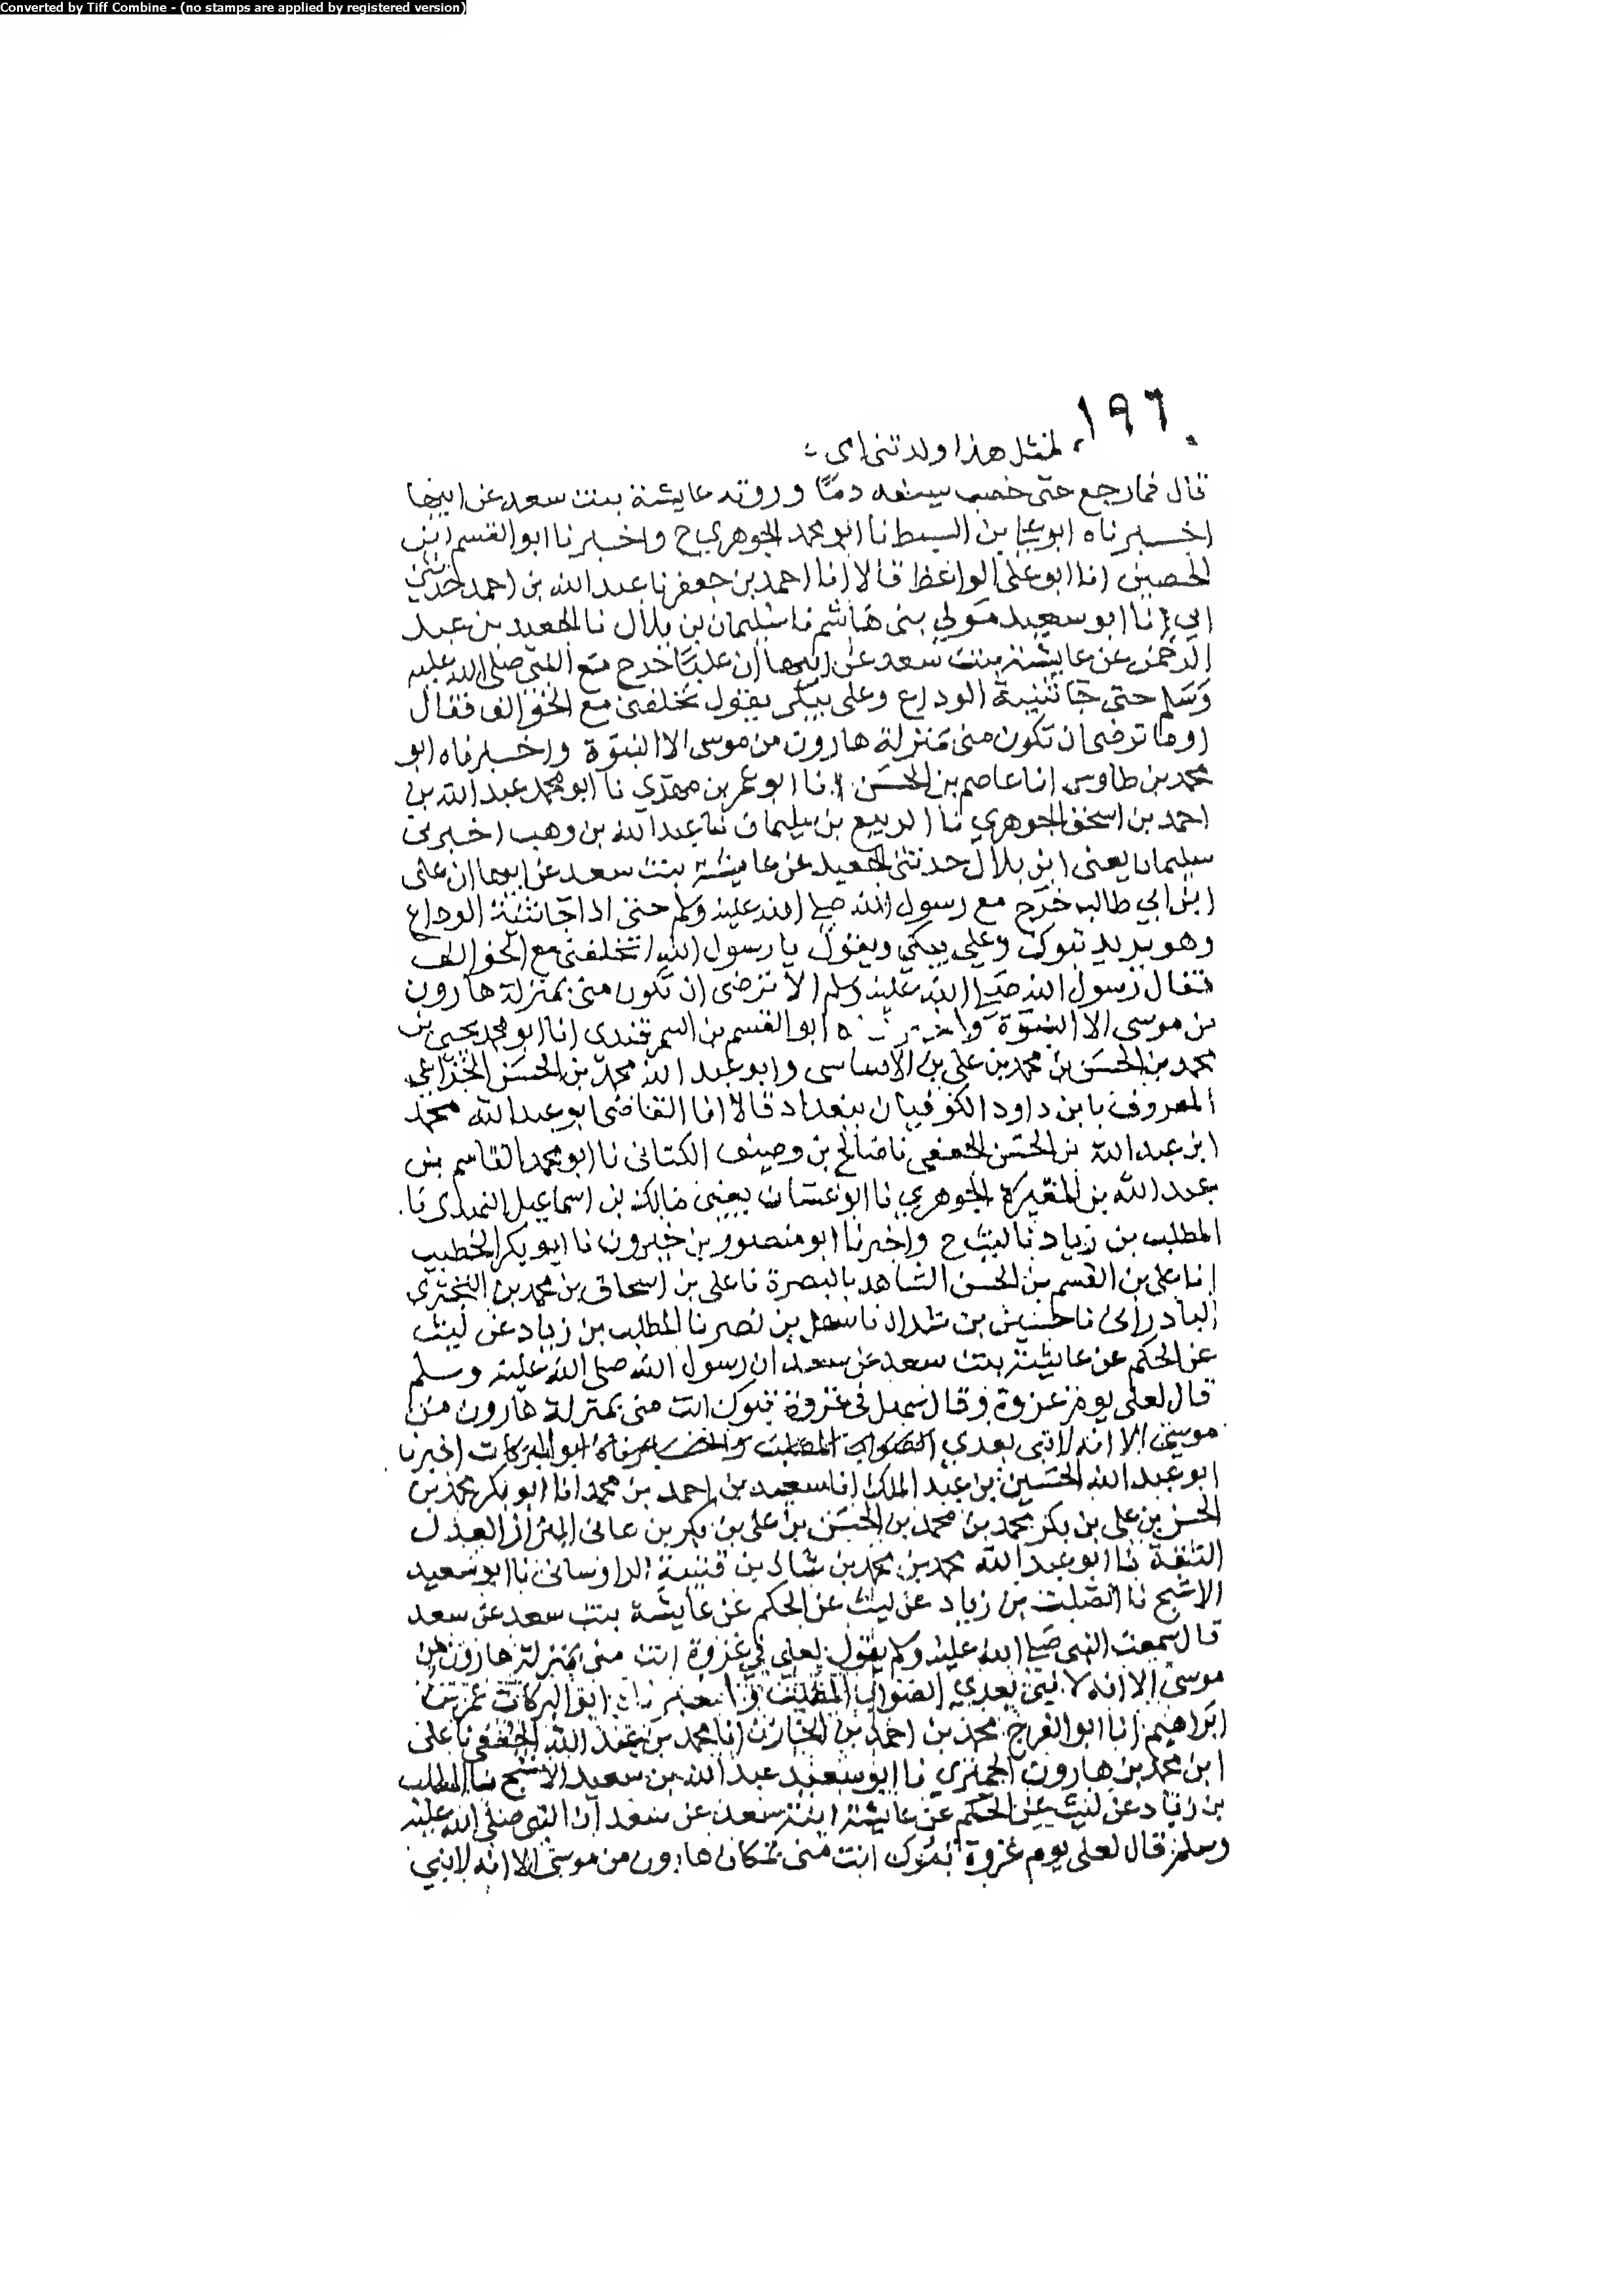 Converted by Tiff Combine - (no stamps are applied by registered version)
١٩٦
لمثل هذا ولدتني امي
قال فما رجع حتى خضب سيفه دما وروته عايشة بنت سعد عن ابيها
اخبرناه ابو بن السبط نا ابو محمد الجوهري ح واخبرنا ابو القسم ابن
الحصين انا ابو علي الواعظ قالا انا احمد بن جعفر نا عبد الله بن احمد حدثني
ابي نا ابو سعيد مولى بني هاشم نا سليمان بن بلال نا الجعيد بن عبد
الرحمن عن عايشة بنت سعد عن ابيها ان عليا خرج مع النبي صلى الله عليه
وسلم حتى جا ثنية الوداع وعلي يبكي يقول تخلفني مع الخوالف فقال
اوما ترضى ان تكون مني بمنزلة هارون من موسى الا النبوة واخبرناه ابو
محمد بن طاوس انا عاصم بن الحسن انا ابو عمر بن مهدي نا ابو محمد عبد الله بن
احمد بن اسحق الجوهري نا الربيع بن سليمان نا عبد الله بن وهب اخبرني
سليمان يعني ابن بلال حدثني الجعيد عن عايشة بنت سعد عن ابيها ان علي
ابن ابي طالب خرج مع رسول الله صلى الله عليه وسلم حتى اذا جا ثنية الوداع
وهو يريد تبوك وعلي يبكي ويقول يا رسول الله اتخلفني مع الخوالف
فقال رسول الله صلى الله عليه وسلم الا ترضى ان تكون مني بمنزلة هارون
من موسى الا النبوة واخبرناه ابو القسم بن السمرقندي انا ابو محمد يحيى بن
محمد بن الحسن بن محمد بن علي بن الاقساسي وابو عبد الله محمد بن الحسن الخزاعي
المعروف بابن داود الكوفيان ببغداد قالا انا القاضي ابو عبد الله محمد
ابن عبد الله بن الحسن الجعفي نا صالح بن وصيف الكتاني نا ابو محمد القاسم بن
عبد الله بن المغيرة الجوهري نا ابو غسان يعني مالك بن اسماعيل النهدي نا
المطلب بن زياد نا ليث ح واخبرنا ابو منصور بن خيرون نا ابو بكر الخطيب
انا علي بن القسم بن الحسن الشاهد بالبصرة نا علي بن اسحاق بن محمد بن البختري
البادراي نا حنيش بن شداد نا سهل بن نصر نا المطلب بن زياد عن ليث
عن الحكم عن عايشة بنت سعد عن سعد ان رسول الله صلى الله عليه وسلم
قال لعلي يوم غزوة وقال سهل في غزوة تبوك انت مني بمنزلة هارون من
موسى الا انه لا نبي بعدي الصواب المطلب واخبرناه ابو البركات اخبرنا
ابو عبد الله الحسين بن عبد الملك انا سعيد بن احمد بن محمد انا ابو بكر محمد بن
الحسن بن علي بن بكر محمد بن محمد بن الحسن بن علي بن بكر بن هاني البزاز العدل
الثقة نا ابو عبد الله محمد بن محمد بن شاذ بن قتيبة الراوساني نا ابو سعيد
الاشج نا الصلت بن زياد عن ليث عن الحكم عن عايشة بنت سعد عن سعد
قال سمعت النبي صلى الله عليه وسلم يقول لعلي في غزوة انت مني بمنزلة هارون من
موسى الا انه لا نبي بعدي الصواب المطلب واخبرناه ابو البركات عمر بن
ابراهيم انا ابو الفرج محمد بن احمد بن الخازن انا محمد بن عبد الله الجعفي نا علي
ابن محمد بن هارون الحميري نا ابو سعيد عبد الله بن سعيد الاشج نا المطلب
بن زياد عن ليث عن الحكم عن عايشة ابنة سعد عن سعد ان النبي صلى الله عليه
وسلم قال لعلي يوم غزوة تبوك انت مني بمكان هارون من موسى الا انه لا نبي